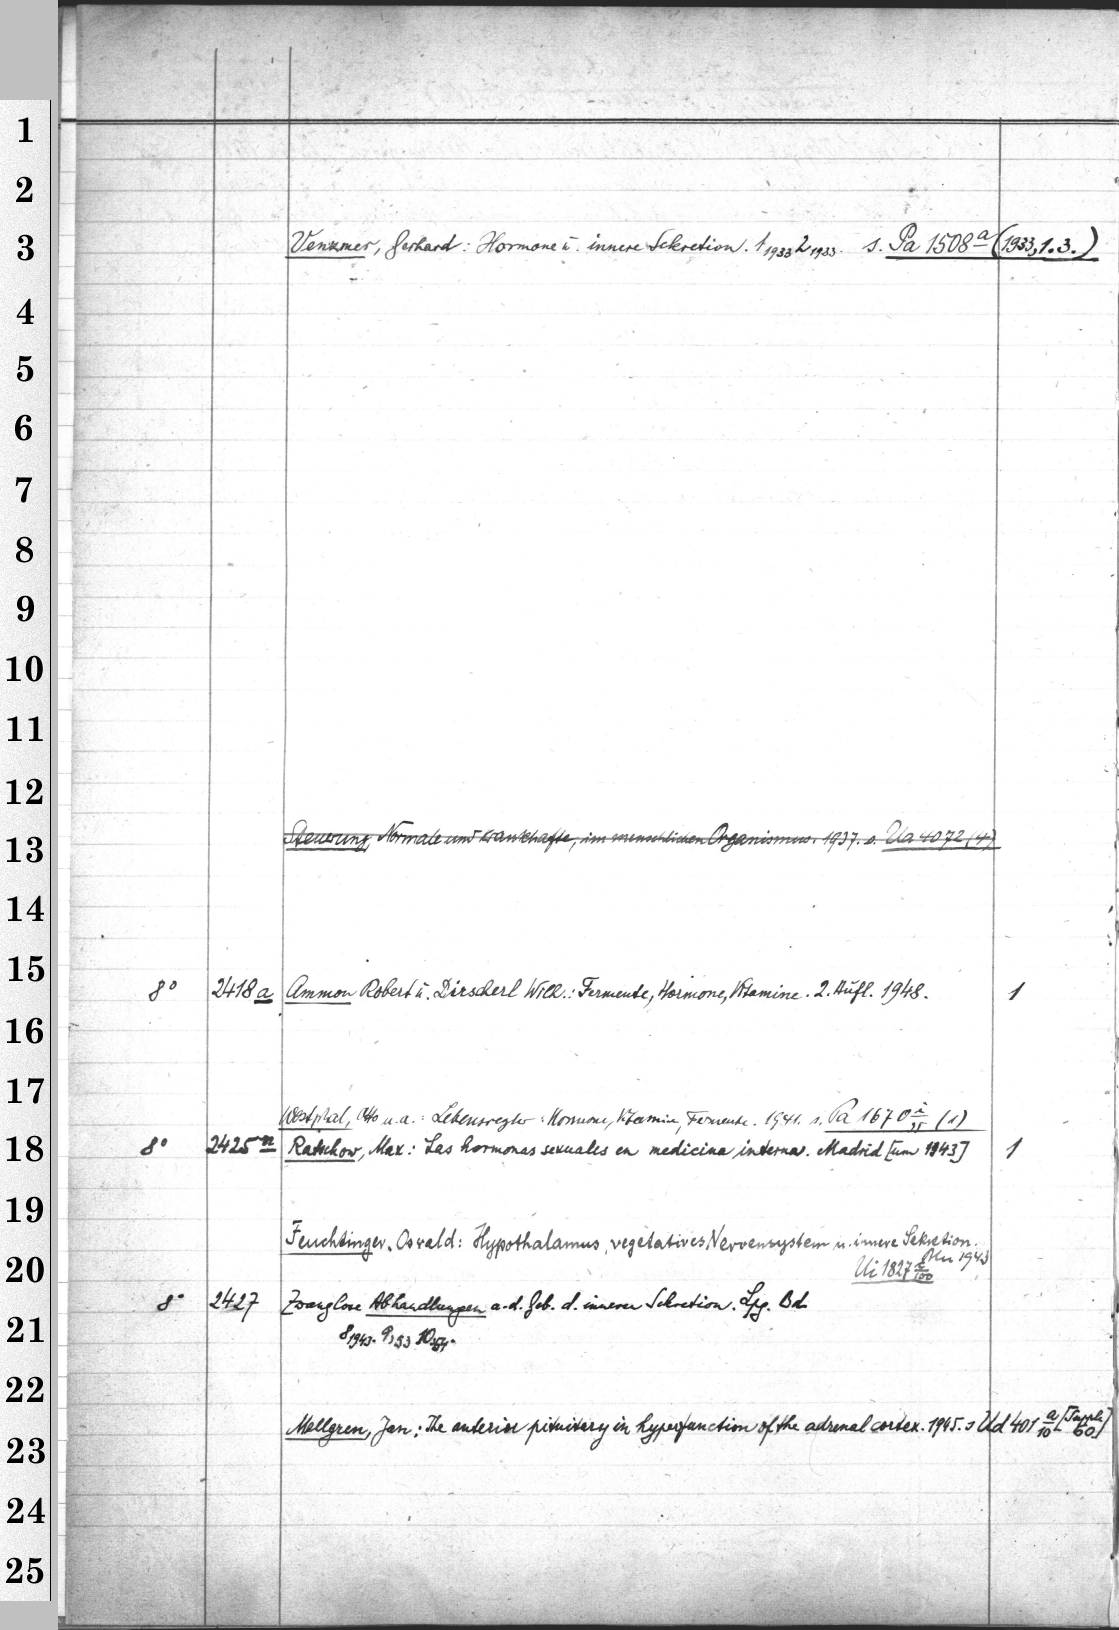 1
2
3 Venzmer, Gerhard: Hormone u. innere Sekretion. 1 1933 2 1933. s. Pa 1508 a (1933,1.3.)
4
5
6
7
8
9
10
11
12
13 Steuerung, Normale und krankhafte, im menschlichen Organismus. 1937. s. Ua 4072 (4)
14
15 8° 2418 a Ammon Robert u. Dirscherl Wilh.: Fermente, Hormone, Vitamine. 2. Aufl. 1948. 1
16
17
Westphal, Otto u.a.: Lebensregler: Hormone, Vitamine, Fermente. 1941. s. Pa 1670 i/35 (1)
18 8° 2425 n Ratschow, Max: Las hormonas sexuales en medicina interna. Madrid [um 1943] 1
19
Feuchtinger, Oswald: Hypothalamus, vegetatives Nervensystem u. innere Sekretion.
20 1943
Ui 1827 /100
8° 2427 Zwanglose Abhandlungen a. d. Geb. d. inneren Sekretion. Lpg. Bd
21 8 1943. 9 1953
22
Mellgren, Jan: The anterior pituitary in hyperfunction of the adrenal cortex. 1945. s Ud 401 a/10 [Suppl. 60]
23
24
25